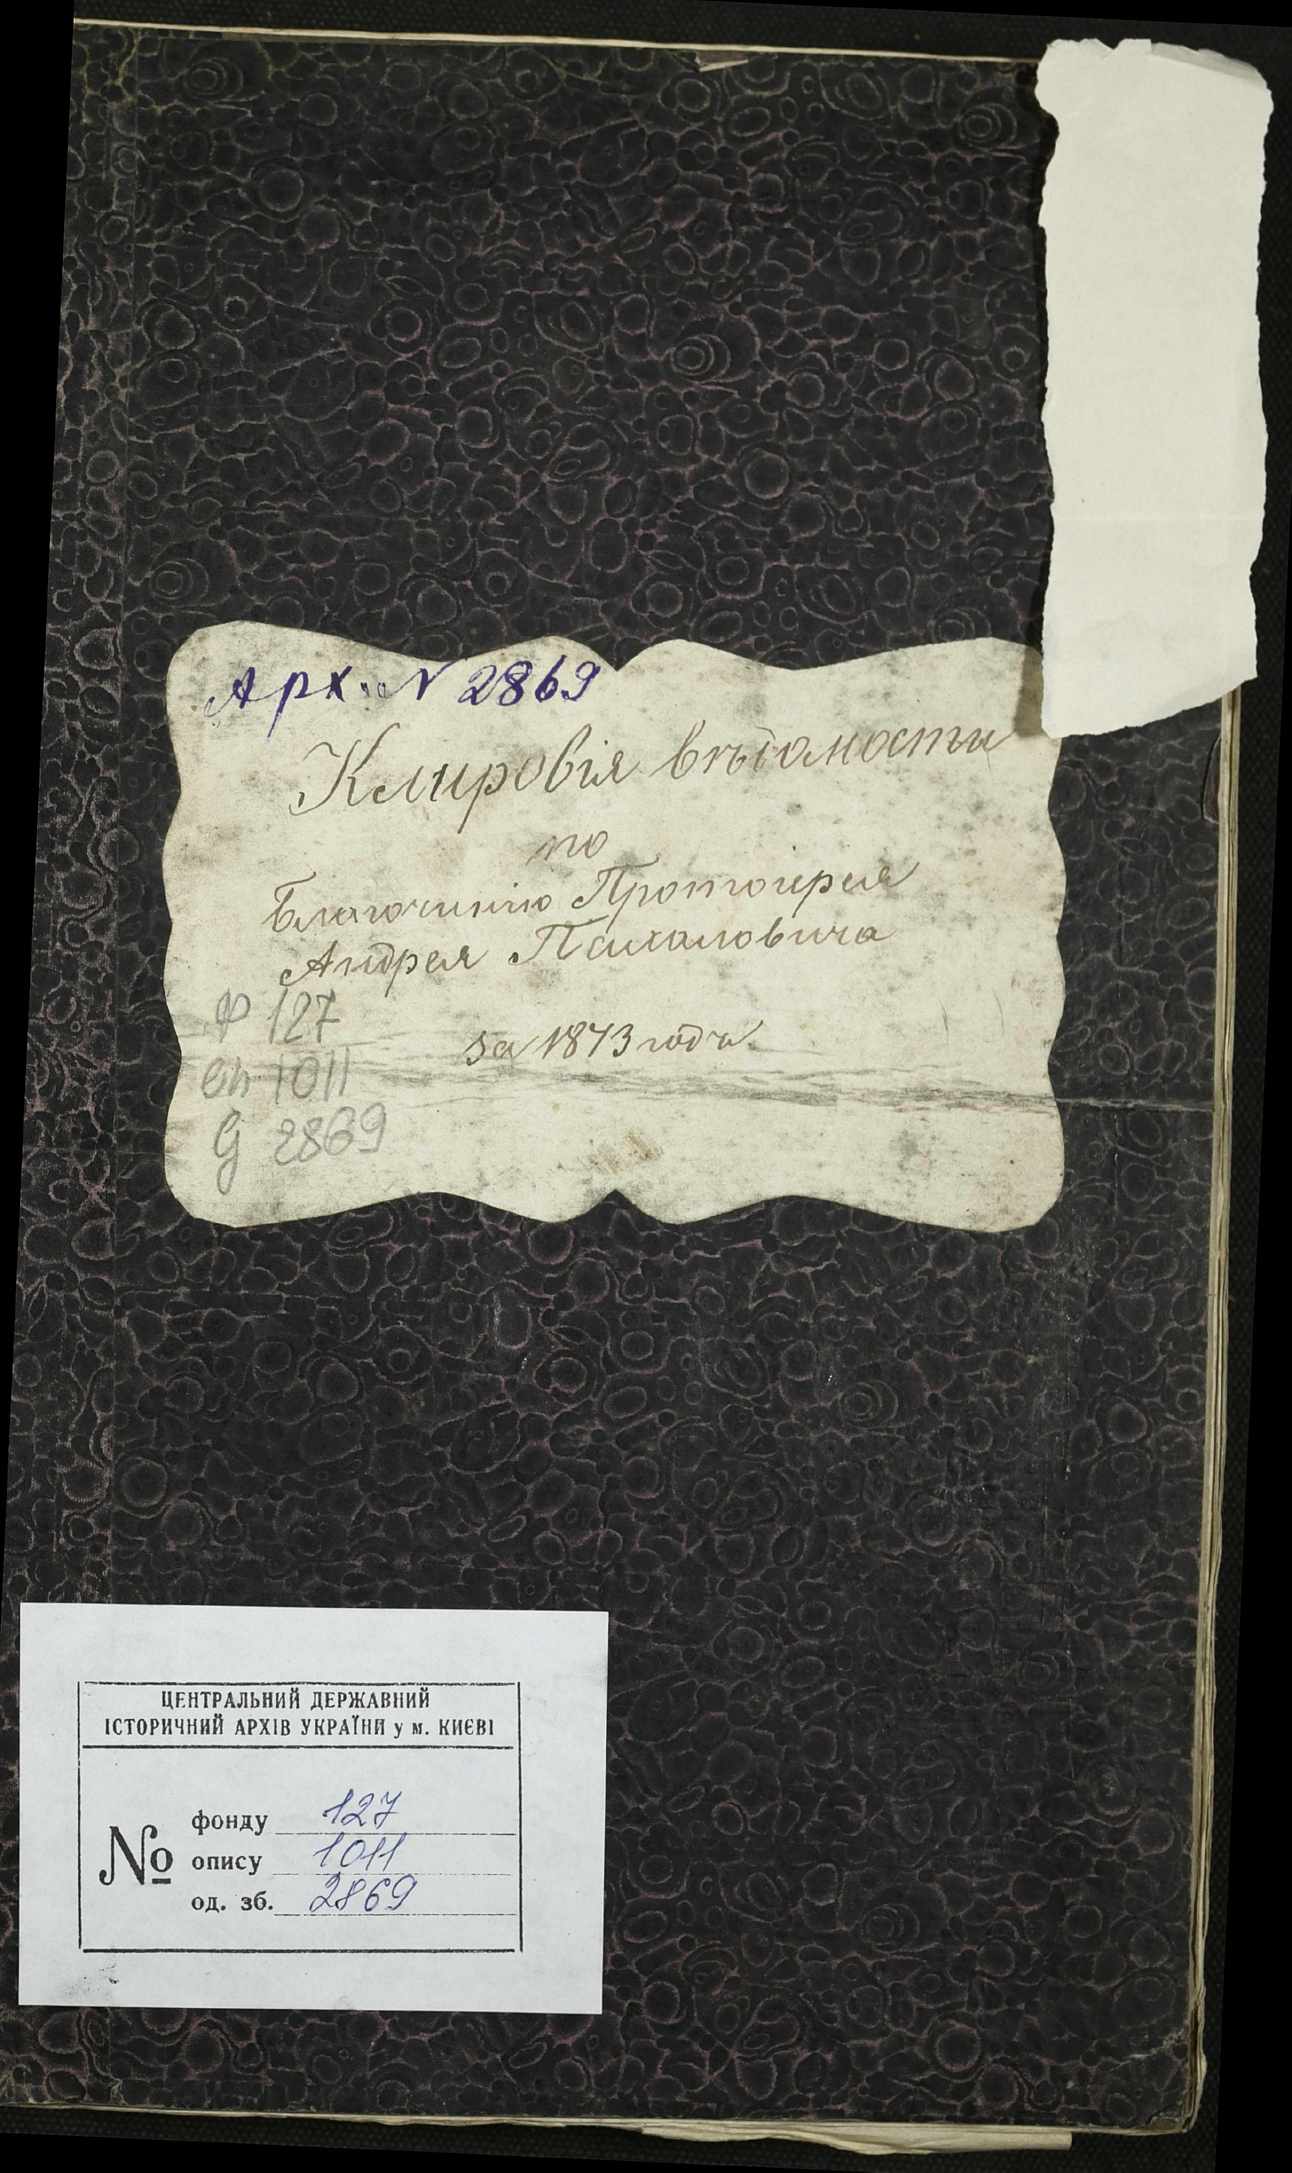 Арх. № 2869
Клировія вѣдомости
по
Благочинію Протоіерея
Андрея
за 1873 годъ
Ф 127
Оп 1011
Д 2869
ЦЕНТРАЛЬНИЙ ДЕРЖАВНИЙ
ІСТОРИЧНИЙ АРХІВ УКРАЇНИ у м. КИЄВІ
№
фонду 127
опису 1011
од. зб. 2869